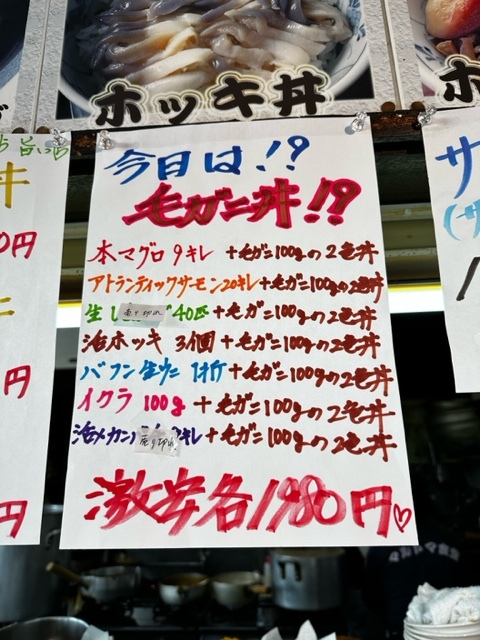 ホッキ丼
今日は!?
毛ガニ丼!!?
本マグロ9キレ +毛ガニ100gの2色丼
アトランティックサーモン20キレ+毛ガニ100gの2色丼
生し 売り切れ 40匹 +毛ガニ100gの2色丼
活ホッキ 3個 +毛ガニ100gの2色丼
バフン生ウニ 1折 +毛ガニ100gの2色丼
イクラ 100g +毛ガニ100gの2色丼
活メカ 売り切れ キレ +毛ガニ100gの2色丼
激安各1980円♡
丼
0円
円
円
ホ
サ
(サ